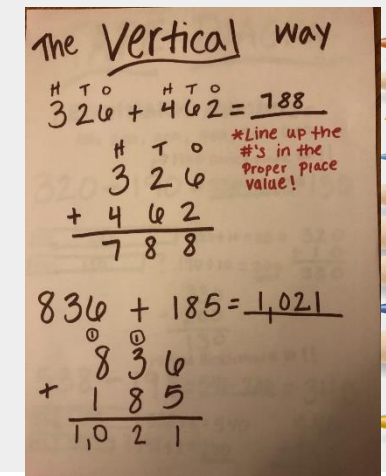 The Vertical way
H T O H T O
326 + 462 = 788
*Line up the
#'s in the
Proper place
value!
H T O
3 2 6
+ 4 6 2
7 8 8
836 + 185 = 1,021
1 1
8 3 6
+ 1 8 5
1,0 2 1